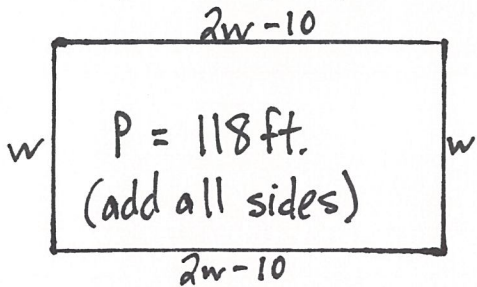 2w-10
w
P = 118 ft.
w
(add all sides)
2w-10